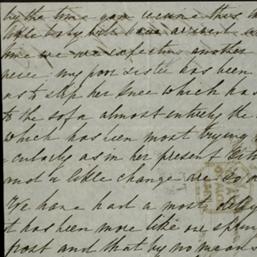 by the time you receive this
little baby will have arrived
time we are expecting another
niece my poor sister has been
as to slip her knee which has
to the sofa almost entirely the
which has been most trying
culiarly as in her present
not a little change are so
We have had a most
it has been more like our
frost and that by no means